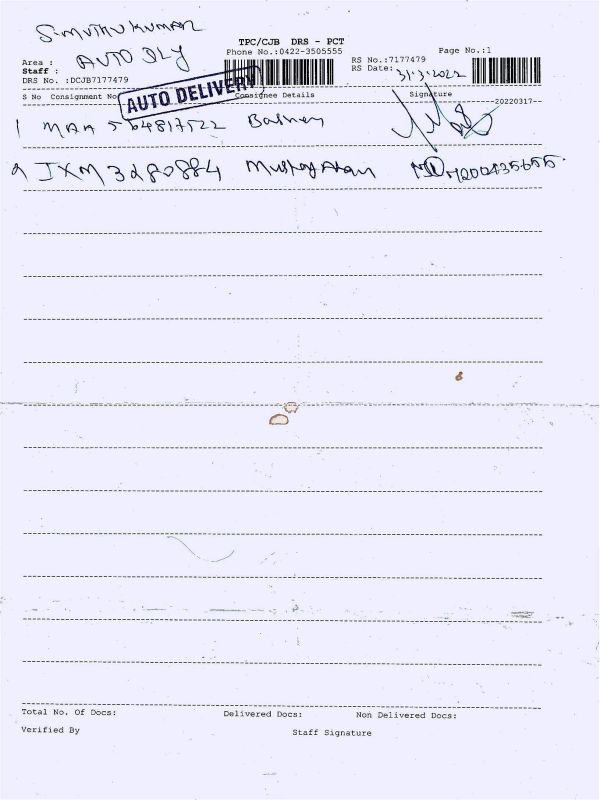 S.MUTHUKUMAR
AUTO DLY
TPC/CJB DRS - PCT
Phone No.:0422-3505555
Page No.:1
Area :
Staff :
DRS No. :DCJB7177479
RS No.:7177479
RS Date: 31.3.2022
AUTO DELIVERY
S No Consignment No Consignee Details Signature
20220317-
1 MAA 564817522
2 JXM 3280884
Total No. Of Docs: Delivered Docs: Non Delivered Docs:
Verified By Staff Signature